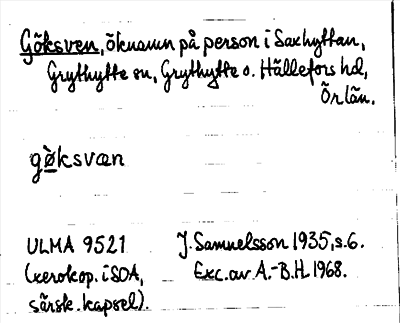 Göksven, öknamn på person i Saxhyttan,
Grythytte sn, Grythytte o. Hällefors hd,
Ör län.
gøksvæn
ULMA 9521 J. Samuelsson 1935, s. 6.
(xerokop. i SOA, Exc. av A.-B.H. 1968.
särsk. kapsel).